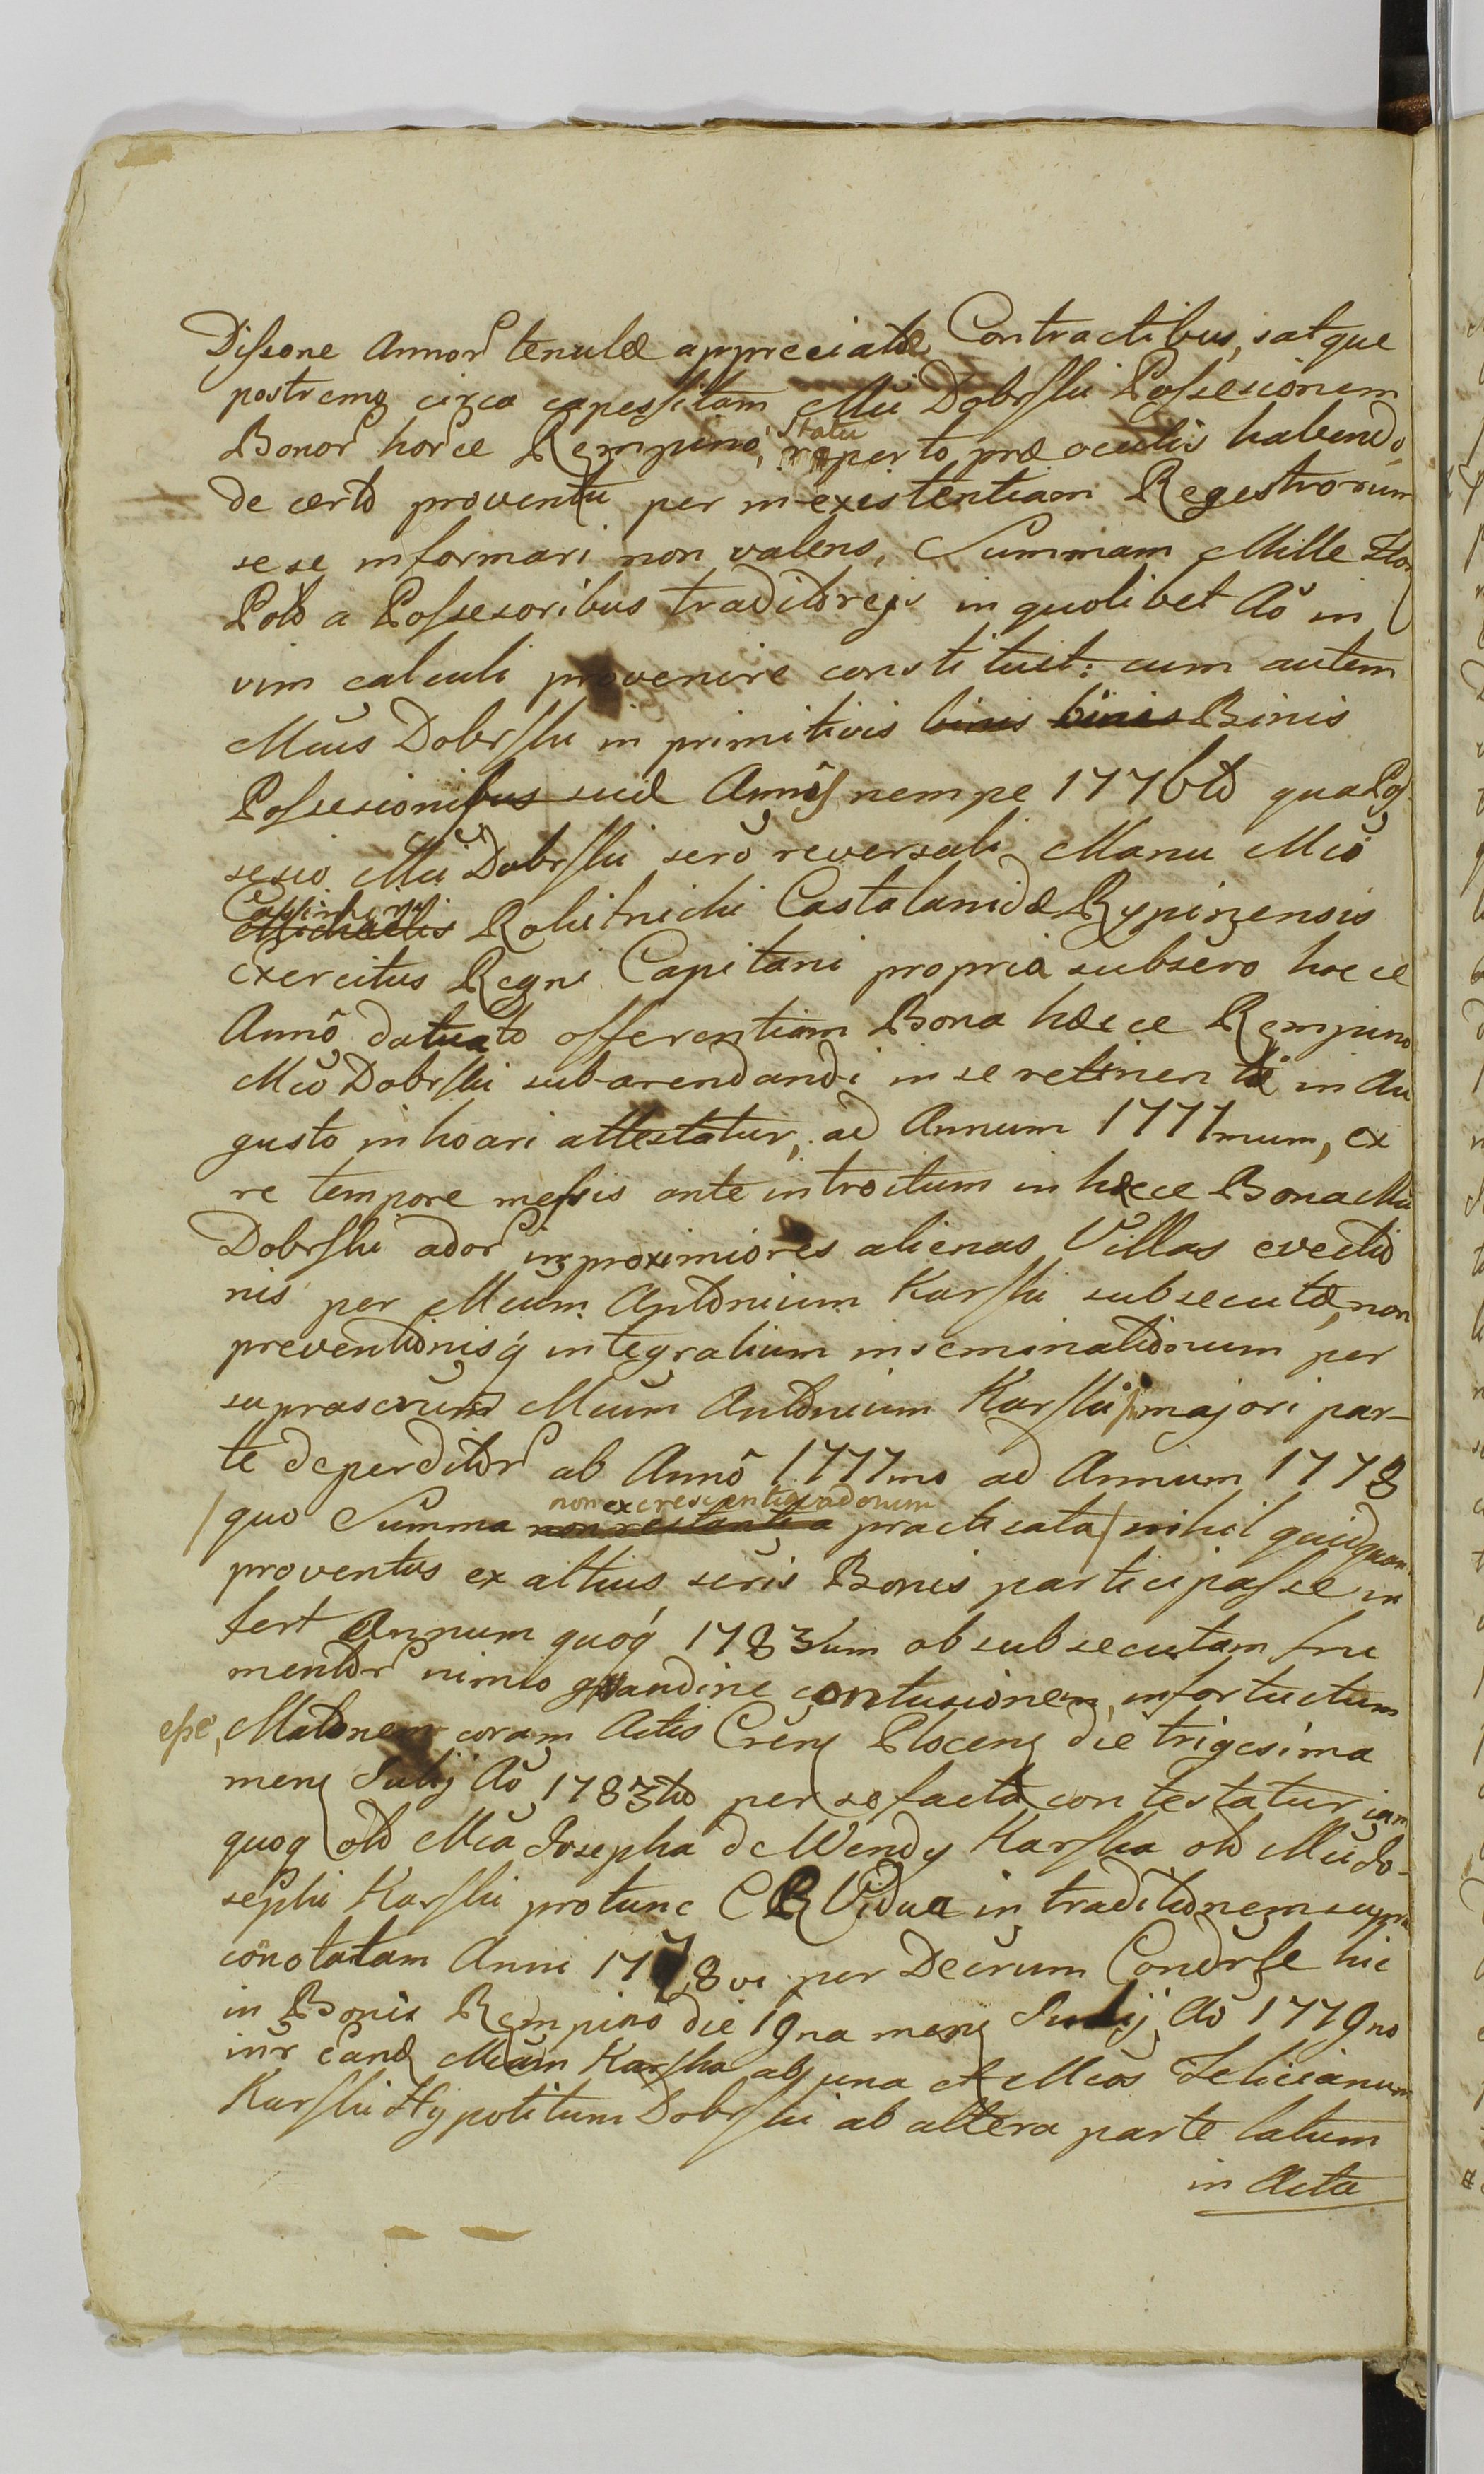 Dissone Annor tenutæ appreciatæ Contractibus, satque
postremq circa capessitam Mci Dobrski Possesionem
Bonor horce Rempino, statu reperto præ oculis habendo,
de certo proventu per in-existentiam Regestrorum
sese informari non valens, Summam Mille Flor
Polo a Possesoribus traditoreis in quolibet Ao in
vim calculi provenire constituit: cum autem
Mcus Dobrski in primitivis binis binis Binis
Possesionibus suæ Annis nempe 1776to qua Pos
sesio Mci Dobrski sero reversali Manu Mci
Michaelis Casimiri Rokitnicki Castelanidæ Rypinensis
Exercitus Regni Capitani propria subsero hocce
Anno datuato offerentiam Bona hæcce Rempino
Mco Dobrski sub-arendandi in se retinentæ in Au
gusto inhoari attestatur, ad Annum 1777mum, ex
re tempore messis ante introitum in hæcce Bona Mci
Dobrski ador in proximiores alienas Villas evectio
nis per Mcum Antonium Karski subsecutæ, non
preventionisq integralium inseminationum per
suprascrum Mcum Antonium Karski majori par-
te deperditor ab Anno 1777mo ad Annum 1778
/quo Summa non restantia non excrescentia vadorum practicata/ nihil quidquam
proventus ex altius scris Bonis participasse in
fert Annum quoq 1783ium ob subsecutam fru
mentor nimio grandine contusionem, infortuitum
esse, Matonem coram Actis Crens Plocens die trigesima
mens Julij Ao 1783tio per se facta contestatur iam
quoq olo Mca Josepha de Wendy Karska olo Mci Jo-
sephi Karski protunc C R Vidua in traditionem supra
conotatam Anni 1778vi per Decrum Condrse hic
in Bonis Rempino die 19na mens Julij Ao 1779no
inr eand Mcam Karska ab una et Mcos Felicianum
Karski Hypolitum Dobrski ab altera parte latum
in Acta